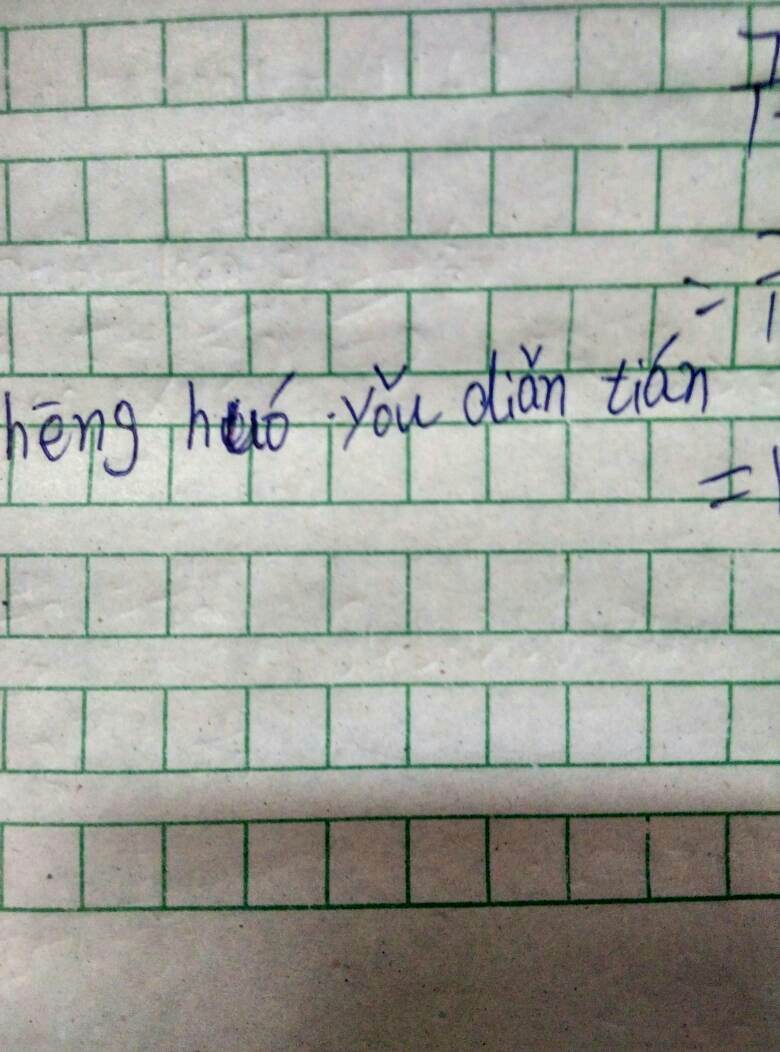 hēng huó yǒu diǎn tián
=
=